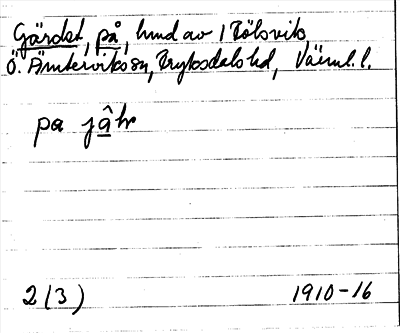 Gärdet, på, hmd av 1 Tölsvik,
Ö. Ämterviks sn, Fryksdals hd, Värml. l.
pa jâ̱hr
2(3) 1910-16